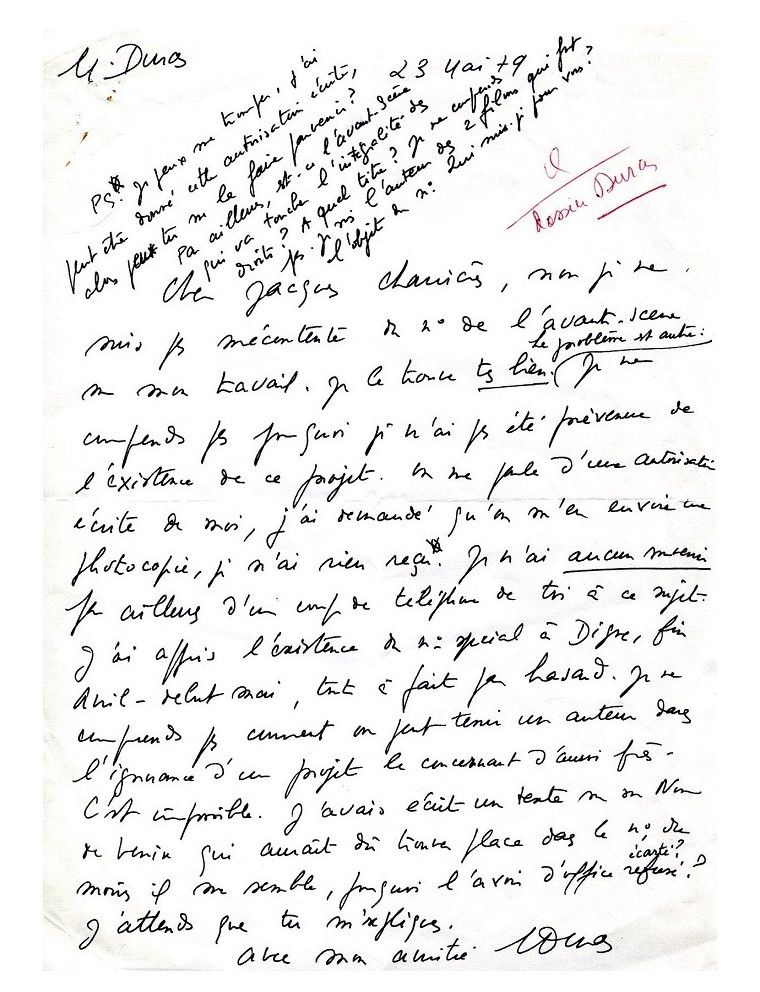 M. Duras
23 Mai 79
PS* : Je peux me tromper, j'ai
peut être donné cette autorisation écrite,
alors peux tu me la faire parvenir?
Par ailleurs, est-ce l'avant-scène
qui va toucher l'intégralité des
droits? A quel titre? Je ne comprends
pas. Je suis l'auteur des 2 films qui font
l'objet du n°. Qui suis-je pour vous?
Dossier Duras
Cher Jacques Charrière, non je ne
suis pas mécontente du n° de l'avant-scène
Le problème est autre :
sur mon travail. Je le trouve très bien. Je ne
comprends pas pourquoi je n'ai pas été prévenue de
l'éxistence de ce projet. On me parle d'une autorisation
écrite de moi, j'ai demandé qu'on m'en envoie une
photocopie, je n'ai rien reçu*. Je n'ai aucun souvenir
par ailleurs d'un coup de téléphone de toi à ce sujet.
J'ai appris l'éxistence du n° spécial à Digne, fin
Avril - début mai, tout à fait par hasard. Je ne
comprends pas comment on peut tenir un auteur dans
l'ignorance d'un projet le concernant d'aussi près -
C'est impossible. J'avais écrit un texte sur Son Nom
de Venise qui aurait dû trouver place dans le n° du
écarté?
moins il me semble, pourquoi l'avoir d'office refusé?
J'attends que tu m'expliques.
Avec mon amitié MDuras